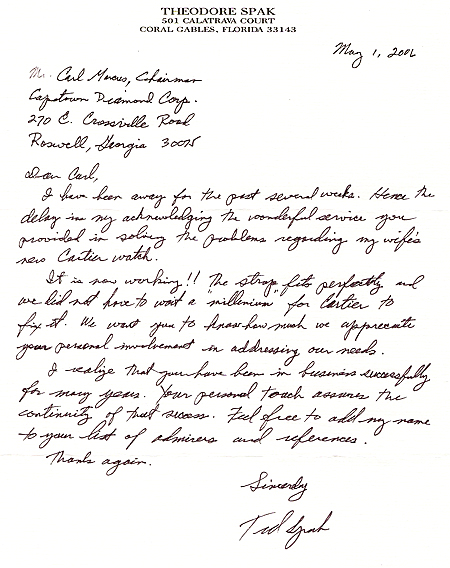 THEODORE SPAK
501 CALATRAVA COURT
CORAL GABLES, FLORIDA 33143
May 1, 2006
Mr. Carl Marcus, Chairman
Capetown Diamond Corp.
270 E. Crossville Road
Roswell, Georgia 30075
Dear Carl,
I have been away for the past several weeks. Hence the
delay in my acknowledging the wonderful service you
provided in solving the problems regarding my wife's
new Cartier watch.
It is now working!! The strap fits perfectly and
we did not have to wait a "millenium" for Cartier to
fix it. We want you to know how much we appreciate
your personal involvement in addressing our needs.
I realize that you have been in business successfully
for many years. Your personal touch assures the
continuity of that success. Feel free to add my name
to your list of admirers and references.
Thanks again.
Sincerely
Ted Spak